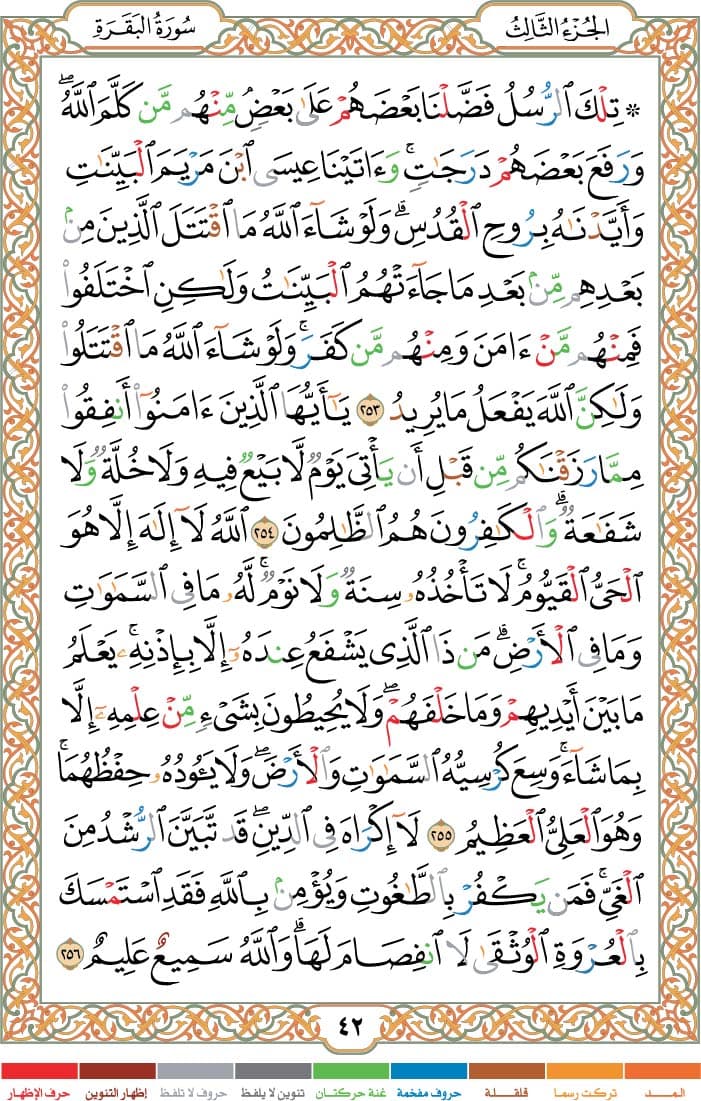 الجُزْءُ الثَّالِثُ
سُورَةُ البَقَرَةِ
۞ تِلْكَ ٱلرُّسُلُ فَضَّلْنَا بَعْضَهُمْ عَلَىٰ بَعْضٍۘ مِّنْهُم مَّن كَلَّمَ ٱللَّهُۖ
وَرَفَعَ بَعْضَهُمْ دَرَجَـٰتٍۚ وَءَاتَيْنَا عِيسَى ٱبْنَ مَرْيَمَ ٱلْبَيِّنَـٰتِ
وَأَيَّدْنَـٰهُ بِرُوحِ ٱلْقُدُسِۗ وَلَوْ شَآءَ ٱللَّهُ مَا ٱقْتَتَلَ ٱلَّذِينَ مِنۢ
بَعْدِهِم مِّنۢ بَعْدِ مَا جَآءَتْهُمُ ٱلْبَيِّنَـٰتُ وَلَـٰكِنِ ٱخْتَلَفُوا۟
فَمِنْهُم مَّنْ ءَامَنَ وَمِنْهُم مَّن كَفَرَۚ وَلَوْ شَآءَ ٱللَّهُ مَا ٱقْتَتَلُوا۟
وَلَـٰكِنَّ ٱللَّهَ يَفْعَلُ مَا يُرِيدُ ٢٥٣ يَـٰٓأَيُّهَا ٱلَّذِينَ ءَامَنُوٓا۟ أَنفِقُوا۟
مِمَّا رَزَقْنَـٰكُم مِّن قَبْلِ أَن يَأْتِىَ يَوْمٌ لَّا بَيْعٌ فِيهِ وَلَا خُلَّةٌ وَلَا
شَفَـٰعَةٌۗ وَٱلْكَـٰفِرُونَ هُمُ ٱلظَّـٰلِمُونَ ٢٥٤ ٱللَّهُ لَآ إِلَـٰهَ إِلَّا هُوَ
ٱلْحَىُّ ٱلْقَيُّومُۚ لَا تَأْخُذُهُۥ سِنَةٌ وَلَا نَوْمٌۚ لَّهُۥ مَا فِى ٱلسَّمَـٰوَٰتِ
وَمَا فِى ٱلْأَرْضِۗ مَن ذَا ٱلَّذِى يَشْفَعُ عِندَهُۥٓ إِلَّا بِإِذْنِهِۦۚ يَعْلَمُ
مَا بَيْنَ أَيْدِيهِمْ وَمَا خَلْفَهُمْۖ وَلَا يُحِيطُونَ بِشَىْءٍ مِّنْ عِلْمِهِۦٓ إِلَّا
بِمَا شَآءَۚ وَسِعَ كُرْسِيُّهُ ٱلسَّمَـٰوَٰتِ وَٱلْأَرْضَۖ وَلَا يَـُٔودُهُۥ حِفْظُهُمَاۚ
وَهُوَ ٱلْعَلِىُّ ٱلْعَظِيمُ ٢٥٥ لَآ إِكْرَاهَ فِى ٱلدِّينِۖ قَد تَّبَيَّنَ ٱلرُّشْدُ مِنَ
ٱلْغَىِّۚ فَمَن يَكْفُرْ بِٱلطَّـٰغُوتِ وَيُؤْمِنۢ بِٱللَّهِ فَقَدِ ٱسْتَمْسَكَ
بِٱلْعُرْوَةِ ٱلْوُثْقَىٰ لَا ٱنفِصَامَ لَهَاۗ وَٱللَّهُ سَمِيعٌ عَلِيمٌ ٢٥٦
٤٢
المـــد تركت رسما قلقـــلة حروف مفخمة غنة حركتـان تنوين لا يلفظ حروف لا تلفظ إظهار التنوين حرف الإظهار